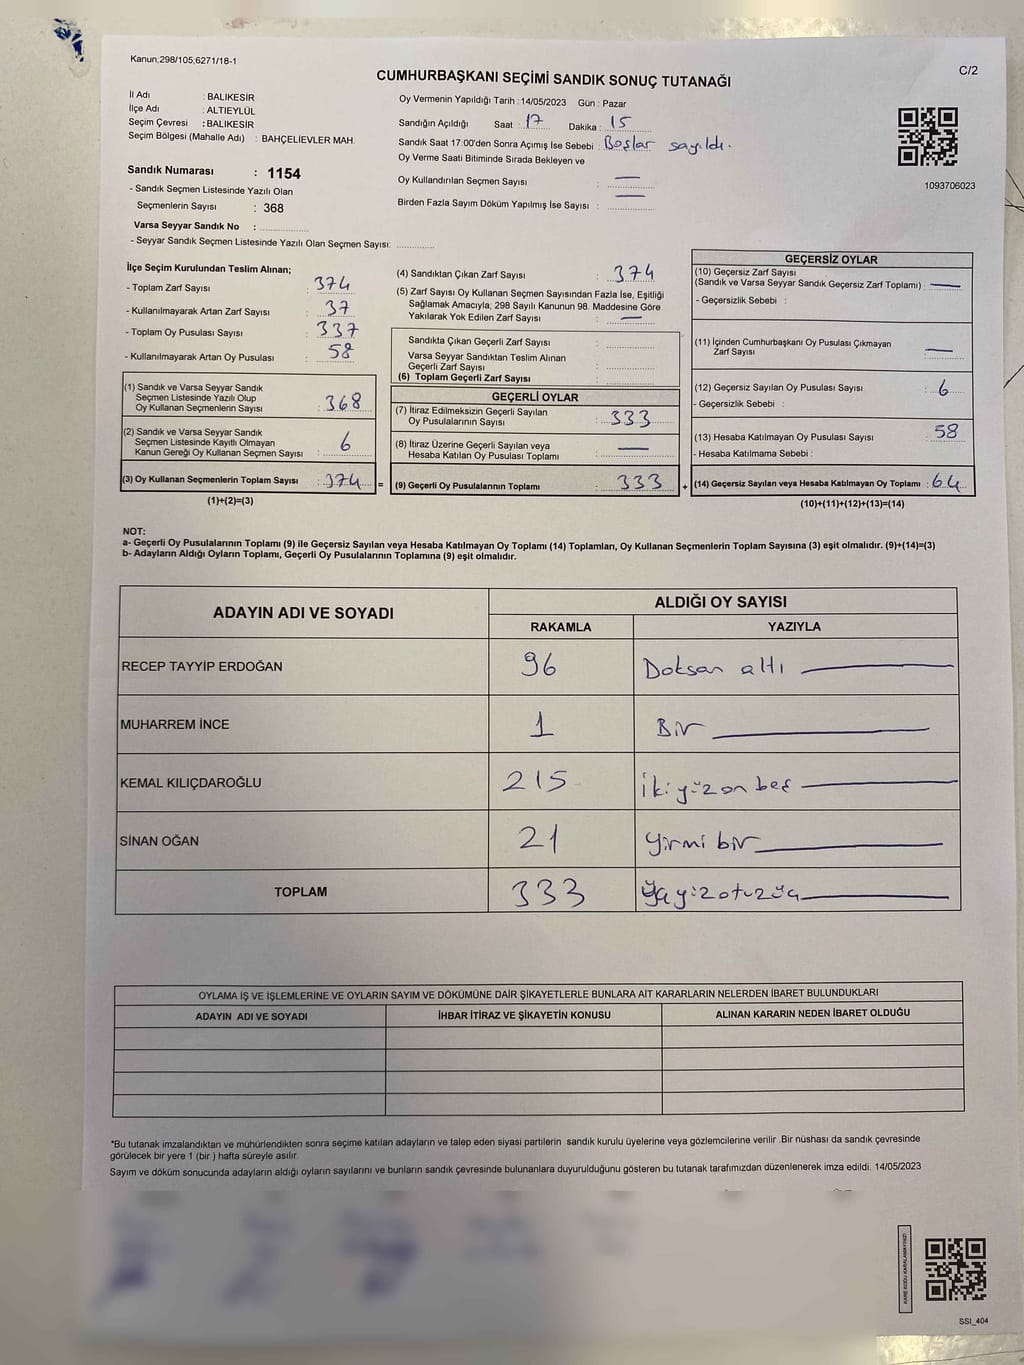 Kanun,298/105,6271/18-1
C/2
CUMHURBAŞKANI SEÇİMİ SANDIK SONUÇ TUTANAĞI
İl Adı : BALIKESİR
İlçe Adı : ALTIEYLÜL
Seçim Çevresi : BALIKESİR
Seçim Bölgesi (Mahalle Adı) : BAHÇELİEVLER MAH.
Sandık Numarası : 1154
- Sandık Seçmen Listesinde Yazılı Olan
Seçmenlerin Sayısı : 368
Varsa Seyyar Sandık No :
- Seyyar Sandık Seçmen Listesinde Yazılı Olan Seçmen Sayısı:
Oy Vermenin Yapıldığı Tarih : 14/05/2023 Gün : Pazar
Sandığın Açıldığı Saat : 17 Dakika : 15
Sandık Saat 17:00'den Sonra Açımış İse Sebebi : Boşlar sayıldı.
Oy Verme Saati Bitiminde Sırada Bekleyen ve
Oy Kullandırılan Seçmen Sayısı : —
Birden Fazla Sayım Döküm Yapılmış İse Sayısı : —
1093706023
İlçe Seçim Kurulundan Teslim Alınan;
- Toplam Zarf Sayısı : 374
- Kullanılmayarak Artan Zarf Sayısı : 37
- Toplam Oy Pusulası Sayısı : 337
- Kullanılmayarak Artan Oy Pusulası : 58
(1) Sandık ve Varsa Seyyar Sandık
Seçmen Listesinde Yazılı Olup
Oy Kullanan Seçmenlerin Sayısı : 368
(2) Sandık ve Varsa Seyyar Sandık
Seçmen Listesinde Kayıtlı Olmayan
Kanun Gereği Oy Kullanan Seçmen Sayısı : 6
(3) Oy Kullanan Seçmenlerin Toplam Sayısı : 374 =
(1)+(2)=(3)
(4) Sandıktan Çıkan Zarf Sayısı : 374
(5) Zarf Sayısı Oy Kullanan Seçmen Sayısından Fazla İse, Eşitliği
Sağlamak Amacıyla; 298 Sayılı Kanunun 98. Maddesine Göre
Yakılarak Yok Edilen Zarf Sayısı : —
Sandıkta Çıkan Geçerli Zarf Sayısı :
Varsa Seyyar Sandıktan Teslim Alınan
Geçerli Zarf Sayısı :
(6) Toplam Geçerli Zarf Sayısı :
GEÇERLİ OYLAR
(7) İtiraz Edilmeksizin Geçerli Sayılan
Oy Pusulalarının Sayısı : 333
(8) İtiraz Üzerine Geçerli Sayılan veya
Hesaba Katılan Oy Pusulası Toplamı : —
(9) Geçerli Oy Pusulalarının Toplamı : 333 +
GEÇERSİZ OYLAR
(10) Geçersiz Zarf Sayısı
(Sandık ve Varsa Seyyar Sandık Geçersiz Zarf Toplamı) : —
- Geçersizlik Sebebi :
(11) İçinden Cumhurbaşkanı Oy Pusulası Çıkmayan
Zarf Sayısı : —
(12) Geçersiz Sayılan Oy Pusulası Sayısı : 6
- Geçersizlik Sebebi :
(13) Hesaba Katılmayan Oy Pusulası Sayısı : 58
- Hesaba Katılmama Sebebi :
(14) Geçersiz Sayılan veya Hesaba Katılmayan Oy Toplamı : 64
(10)+(11)+(12)+(13)=(14)
NOT:
a- Geçerli Oy Pusulalarının Toplamı (9) ile Geçersiz Sayılan veya Hesaba Katılmayan Oy Toplamı (14) Toplamları, Oy Kullanan Seçmenlerin Toplam Sayısına (3) eşit olmalıdır. (9)+(14)=(3)
b- Adayların Aldığı Oyların Toplamı, Geçerli Oy Pusulalarının Toplamına (9) eşit olmalıdır.
ADAYIN ADI VE SOYADI ALDIĞI OY SAYISI
RAKAMLA YAZIYLA
RECEP TAYYİP ERDOĞAN 96 Doksan altı
MUHARREM İNCE 1 Bir
KEMAL KILIÇDAROĞLU 215 İkiyüzonbeş
SİNAN OĞAN 21 Yirmi bir
TOPLAM 333 Üçyüzotuzüç
OYLAMA İŞ VE İŞLEMLERİNE VE OYLARIN SAYIM VE DÖKÜMÜNE DAİR ŞİKAYETLERLE BUNLARA AİT KARARLARIN NELERDEN İBARET BULUNDUKLARI
ADAYIN ADI VE SOYADI İHBAR İTİRAZ VE ŞİKAYETİN KONUSU ALINAN KARARIN NEDEN İBARET OLDUĞU
*Bu tutanak imzalandıktan ve mühürlendikten sonra seçime katılan adayların ve talep eden siyasi partilerin sandık kurulu üyelerine veya gözlemcilerine verilir .Bir nüshası da sandık çevresinde
görülecek bir yere 1 (bir ) hafta süreyle asılır.
Sayım ve döküm sonucunda adayların aldığı oyların sayılarını ve bunların sandık çevresinde bulunanlara duyurulduğunu gösteren bu tutanak tarafımızdan düzenlenerek imza edildi. 14/05/2023
KARE KODU KARALAMAYINIZ!
SSI_404